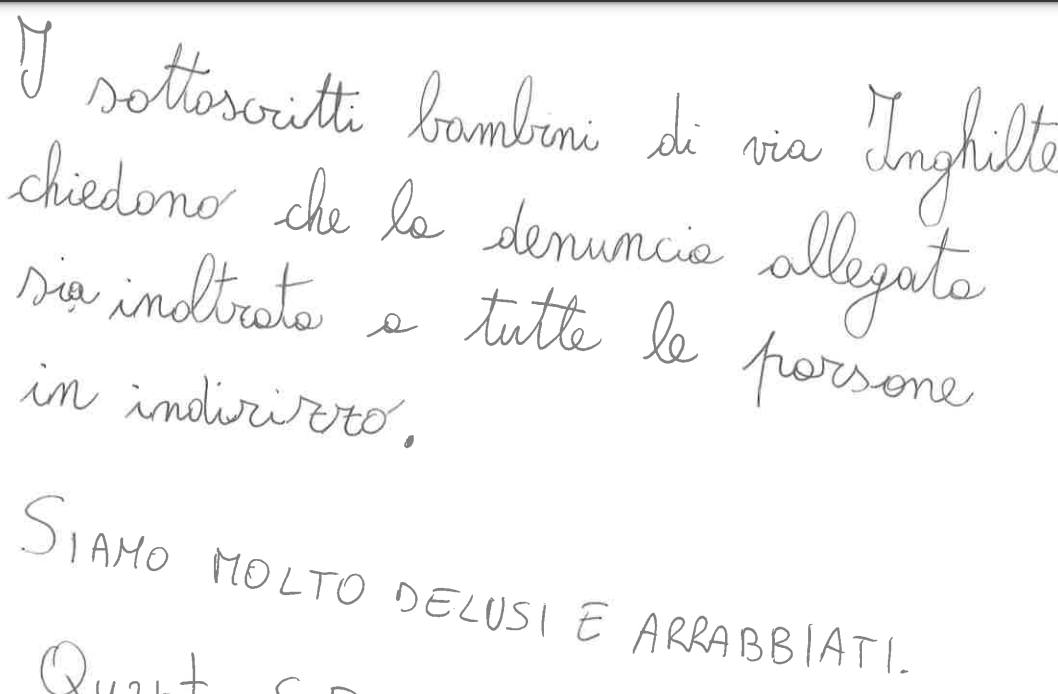 I sottoscritti bambini di via Inghilte
chiedono che la denuncia allegata
sia inoltrata a tutte le persone
in indirizzo.
SIAMO MOLTO DELUSI E ARRABBIATI.